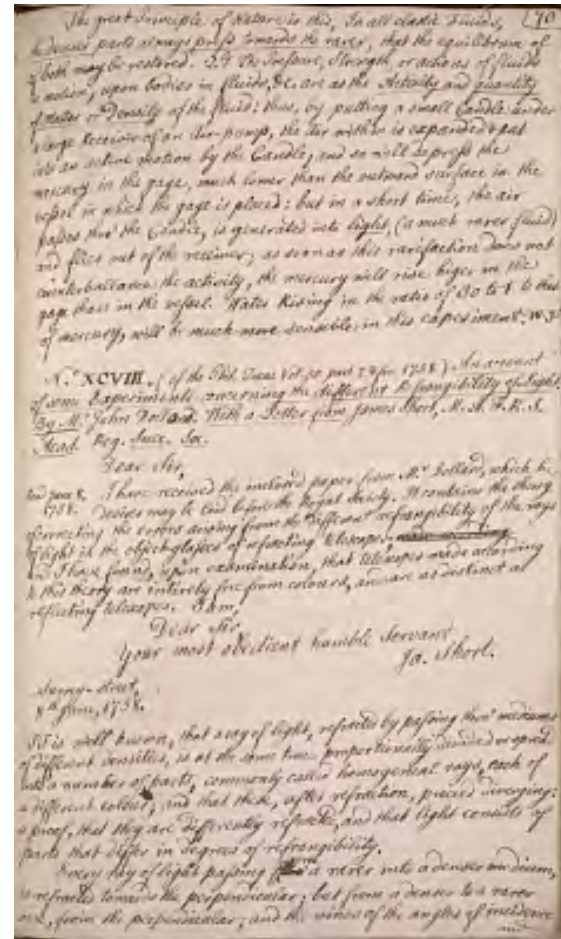 The great Principle of Nature is this, In all elastic Fluids, [70
denser parts always press towards the rarer, that the equilibrium of
both may be restored. 2.ᵈ The Pressure, Strength, or action of fluids
in motion, upon bodies in fluids, &c. are as the Activity and quantity
of Matter or Density of the fluid: thus, by putting a small Candle under
a large Receiver of an Air-pump, the Air within is expanded & put
into an active motion by the Candle, and so will depress the
mercury in the gage, much lower than the outward surface in the
vessel in which the gage is placed: but in a short time, the air
passes thro' the Candle, is generated into light, (a much rarer fluid)
and flies out of the receiver; as soon as this rarifaction does not
counterballance the activity, the mercury will rise higer in the
gage than in the vessel. Water Rising in the ratio of 30 to 1 to that
of mercury, will be much more sensible in this experiment.
N.º XCVIII. (of the Phil. Trans. Vol. 50 part 2 for 1758.) An account
of some Experiments concerning the different Refrangibility of Light.
By Mr. John Dolland. With a Letter from James Short, M. A. F. R. S.
Acad. Reg. Suec. Soc.
Dear Sir,
Read June 8, I have received the inclosed paper from Mr. Dolland, which he
1758. desires may be laid before the Royal Society. It contains the theory
of correcting the errors arising from the different refrangibility of the rays
of light in the object-glasses of refracting telescopes;
and I have found, upon examination, that telescopes made according
to this theory are intirely free from colours, and are as distinct as
reflecting telescopes. I am,
Dear Sir
Your most obedient humble Servant
Ja. Short.
Surry-street,
8th June, 1758.
It is well known, that a ray of light, refracted by passing thro' mediums
of different densities, is at the same time proportionally divided or spread
into a number of parts, commonly called homogeneal rays, each of
a different colour; and that these, after refraction, proceed diverging:
a proof, that they are differently refracted, and that light consists of
parts that differ in degrees of refrangibility.
Every ray of light passing a rarer into a denser medium,
is refracted towards the perpendicular; but from a denser to a rarer
one, from the perpendicular; and the sines of the angles of incidence
and